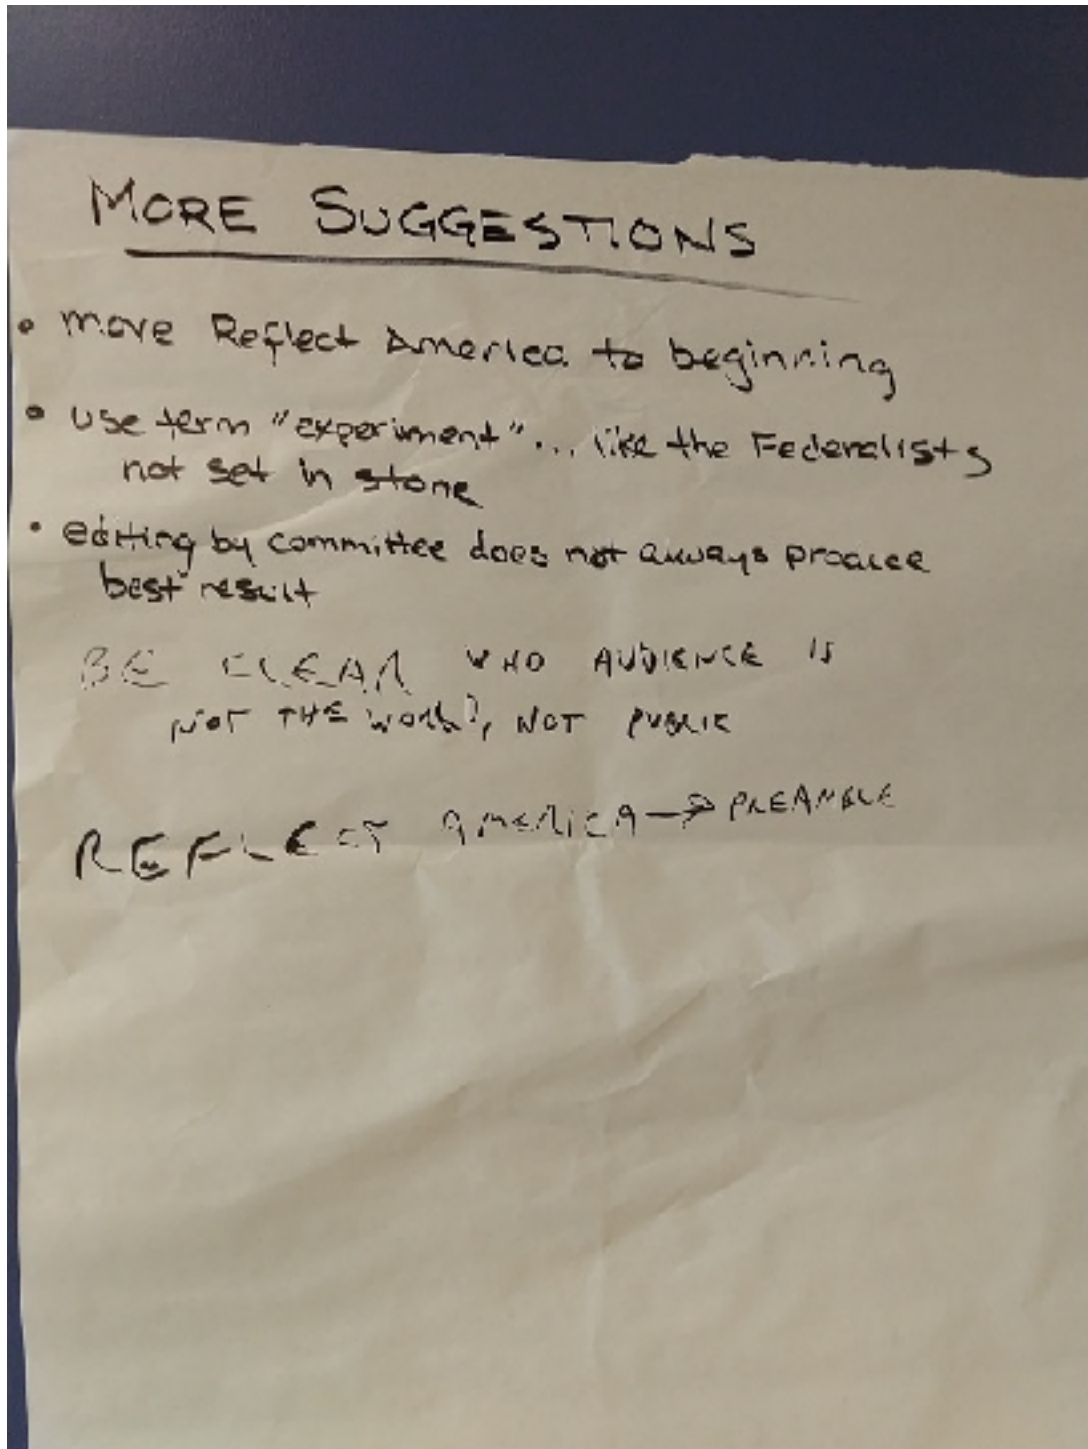 MORE SUGGESTIONS
• move Reflect America to beginning
• use term "experiment"... like the Federalists
not set in stone
• editing by committee does not always produce
best result
BE CLEAR WHO AUDIENCE IS
NOT THE WORLD, NOT PUBLIC
REFLECT AMERICA → PREAMBLE